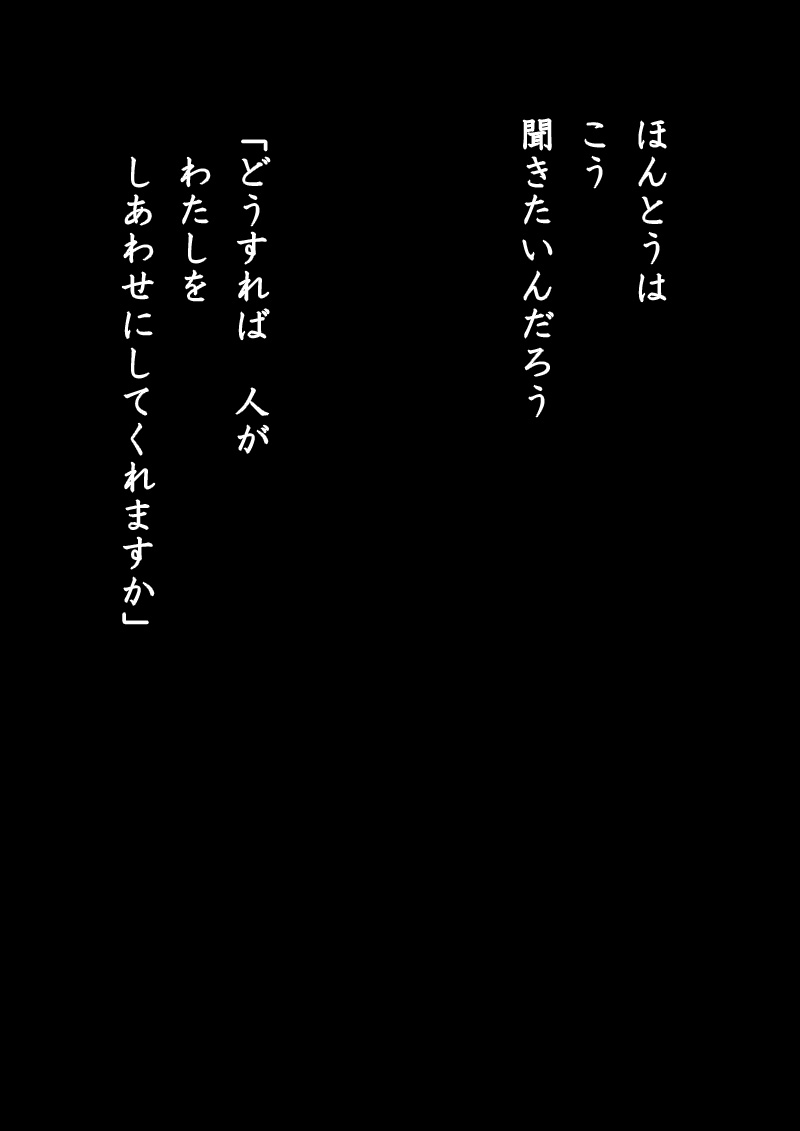 ほんとうは
こう
聞きたいんだろう
「どうすれば　人が
わたしを
しあわせにしてくれますか」